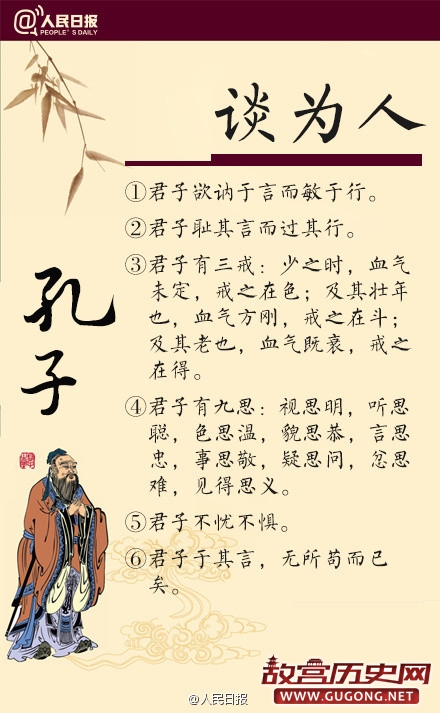 @人民日报
PEOPLE'S DAILY
谈为人
孔子
①君子欲讷于言而敏于行。
②君子耻其言而过其行。
③君子有三戒：少之时，血气
未定，戒之在色；及其壮年
也，血气方刚，戒之在斗；
及其老也，血气既衰，戒之
在得。
④君子有九思：视思明，听思
聪，色思温，貌思恭，言思
忠，事思敬，疑思问，忿思
难，见得思义。
⑤君子不忧不惧。
⑥君子于其言，无所苟而已
矣。
@人民日报
故宫历史网
WWW.GUGONG.NET